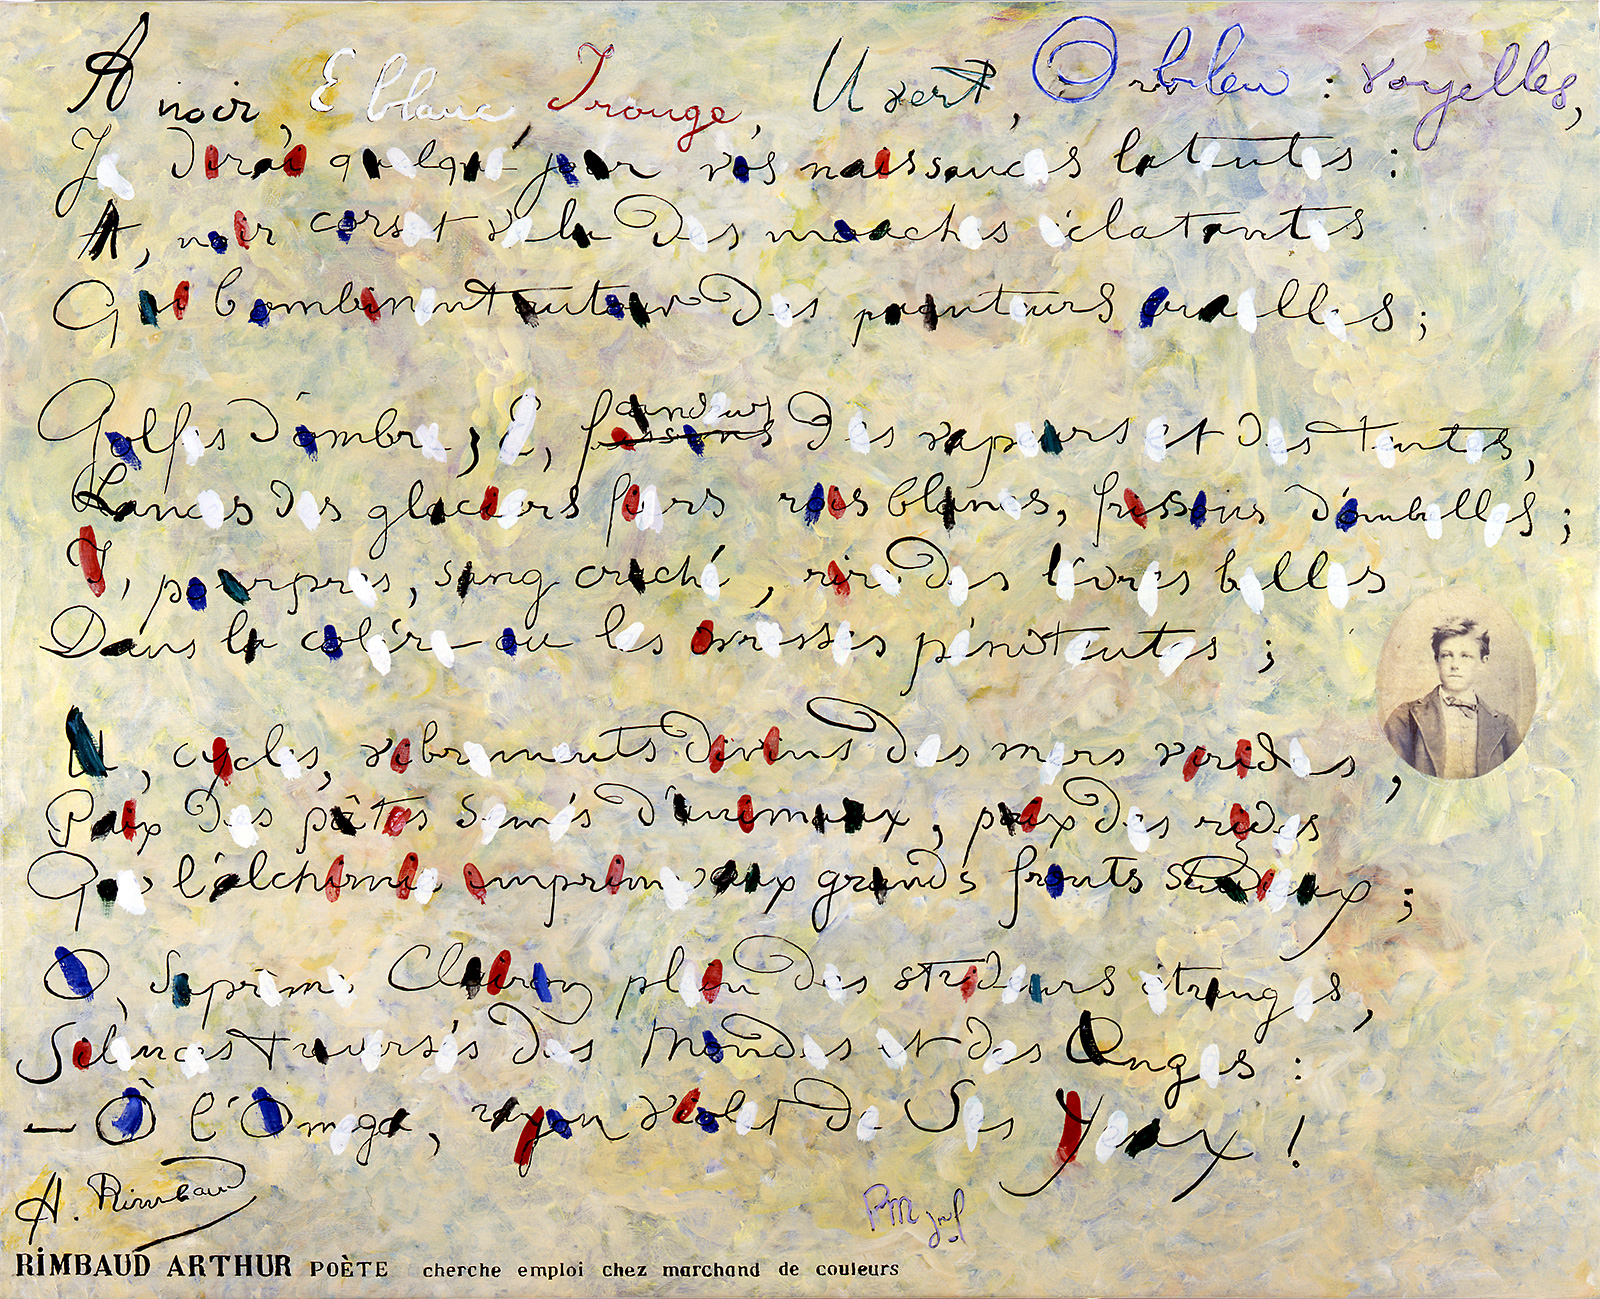 A noir, E blanc, I rouge, U vert, O bleu : voyelles,
Je dirai quelque jour vos naissances latentes :
A, noir corset velu des mouches éclatantes
Qui bombinent autour des puanteurs cruelles ;
candeurs
Golfes d'ombre ; E, frissons des vapeurs et des tentes,
Lances des glaciers fiers rois blancs, frissons d'ombelles ;
I, pourpres, sang craché, rire des lèvres belles
Dans la colère ou les ivresses pénitentes ;
U, cycles, vibrements divins des mers virides,
Paix des pâtis semés d'animaux, paix des rides
Que l'alchimie imprime aux grands fronts studieux ;
O, Suprême Clairon plein des strideurs étranges,
Silences traversés des Mondes et des Anges :
— Ô l'Oméga, rayon violet de Ses Yeux !
A. Rimbaud
RIMBAUD ARTHUR POÈTE cherche emploi chez marchand de couleurs